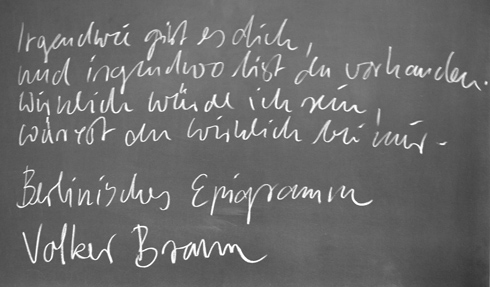 Irgendwie gibt es dich,
und irgendwo bist du vorhanden.
Wirklich würde ich sein,
wärest du wirklich bei mir.
Berlinisches Epigramm
Volker Braun